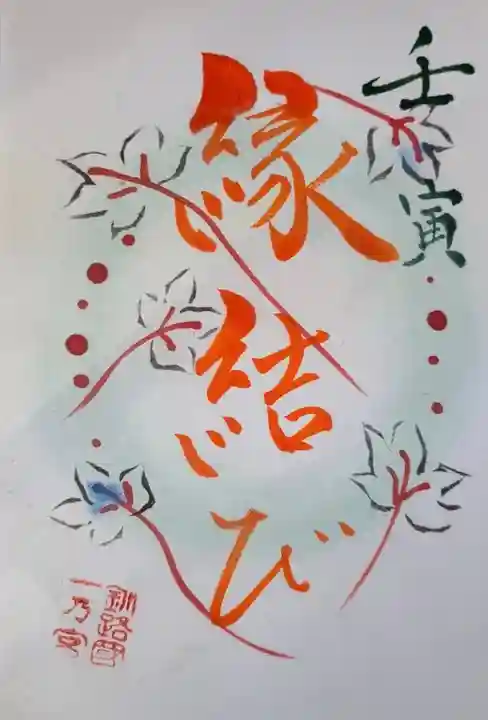 壬寅
縁結び
釧路國
一乃宮